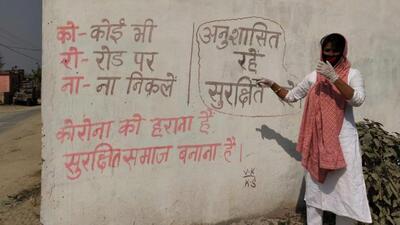 को- कोई भी
रो- रोड पर
ना- ना निकलें
अनुशासित
रहें
सुरक्षित
कोरोना को हराना हैं
सुरक्षित समाज बनाना है।
V.K
K S